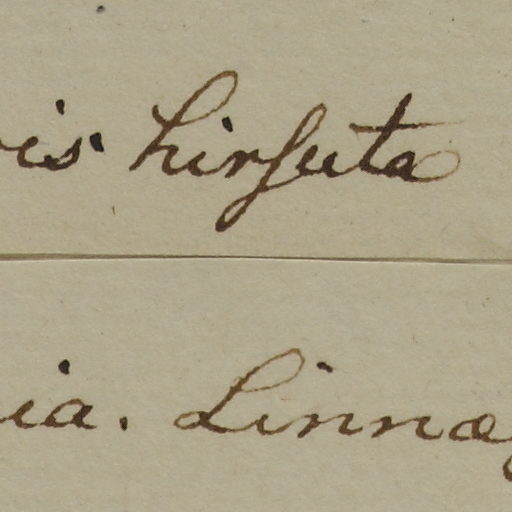 is hirſuta
ia. Linnæ